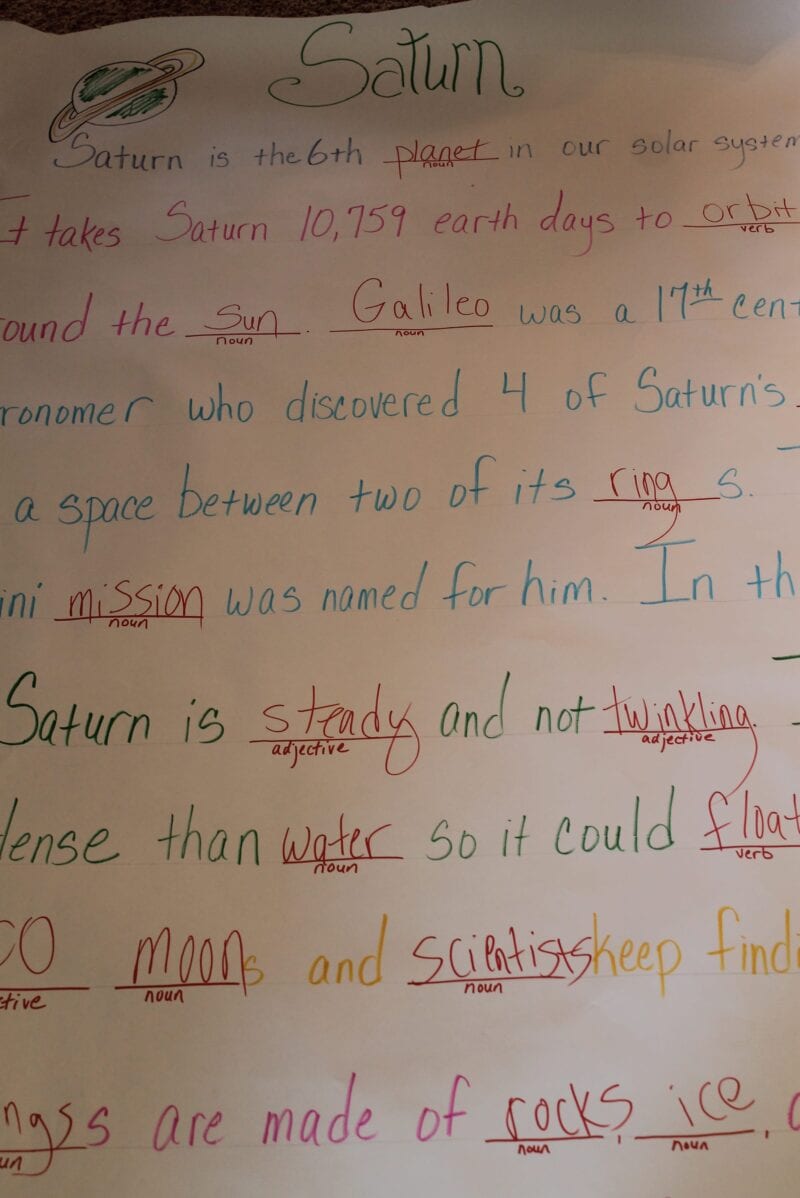 Saturn
Saturn is the 6th planet in our solar system
noun
It takes Saturn 10,759 earth days to orbit
verb
ound the Sun. Galileo was a 17th cent
noun noun
ronomer who discovered 4 of Saturn's
a space between two of its rings.
noun
ini mission was named for him. In th
noun
Saturn is steady and not twinkling.
adjective adjective
dense than water so it could float
noun verb
moons and scientists keep findi
ctive noun noun
ngss are made of rocks, ice,
un noun noun